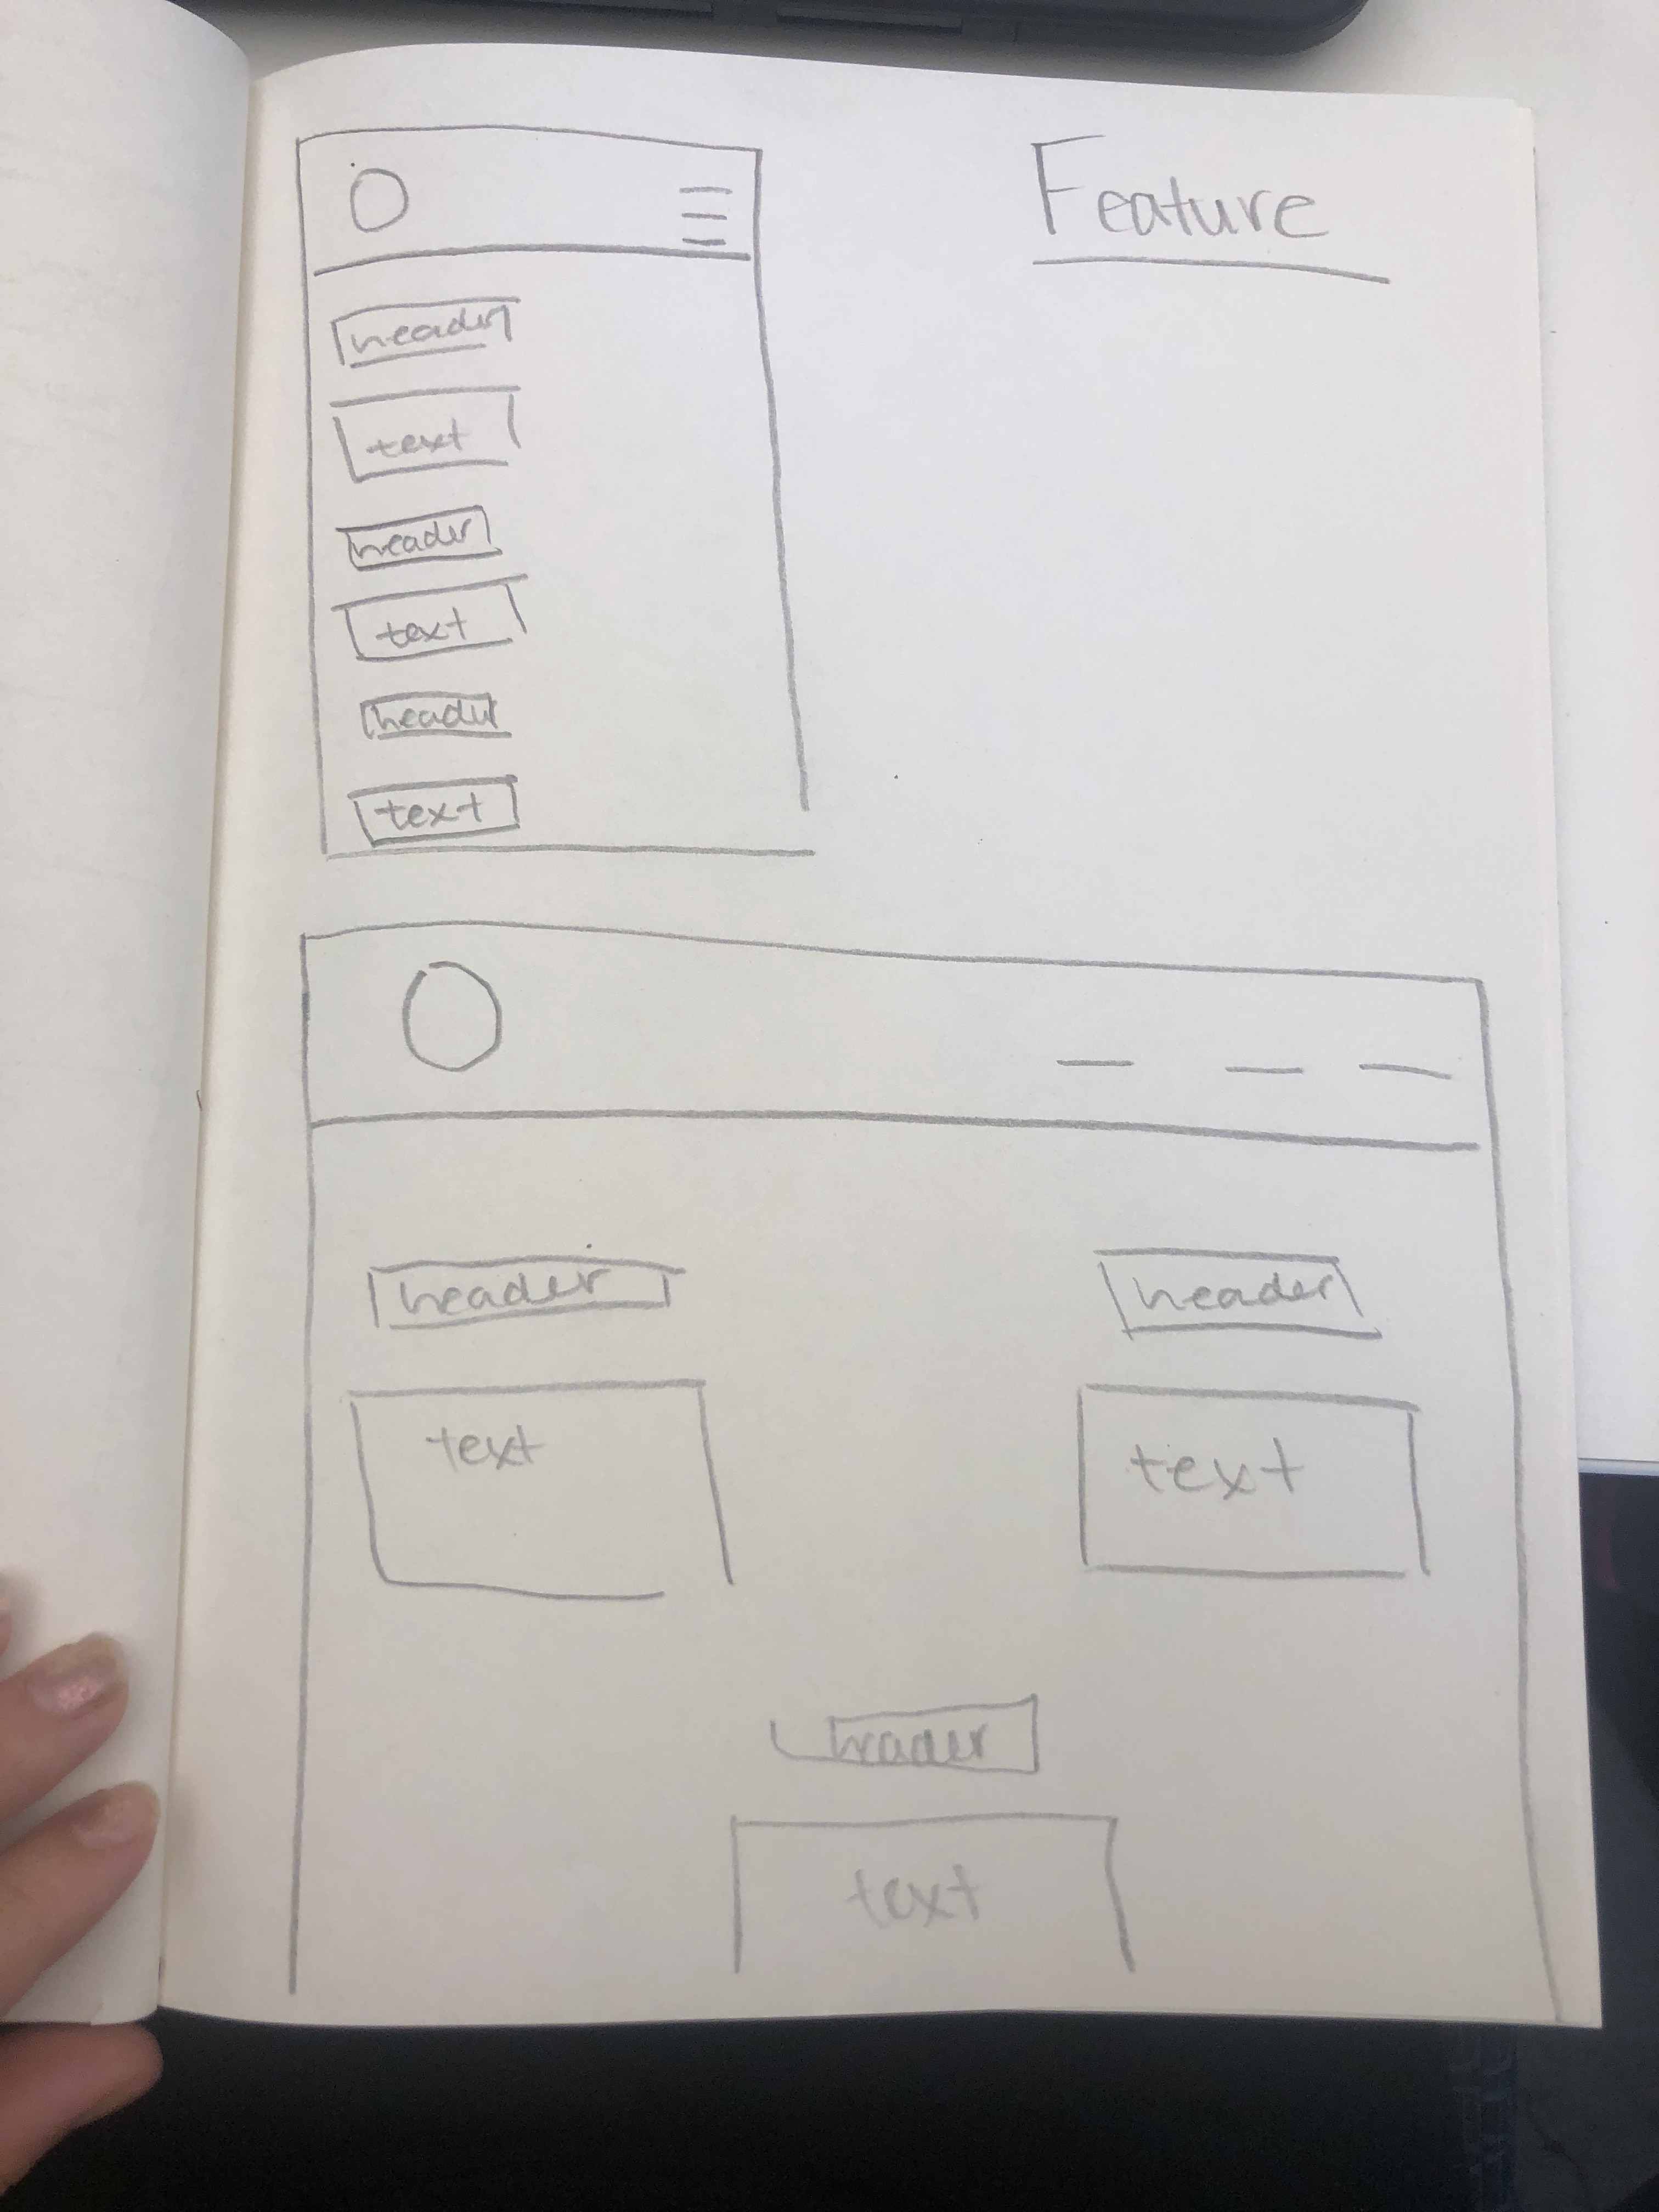 Feature
header
text
header
text
header
text
header header
text text
header
text